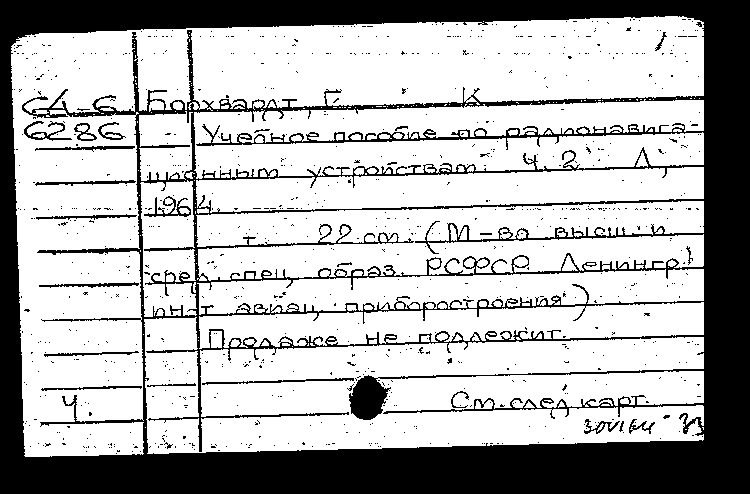 64-6 Борхвардт, Г. К
6286 Учебное пособие по радионавига-
ционным устройствам. Ч. 2 Л,
1964.
т. 22 см. (М-во высш. и
сред. спец. образ. РСФСР. Ленингр.
ин-т авиац. приборостроения)
Продаже не подлежит.
Ч. См. след. карт.